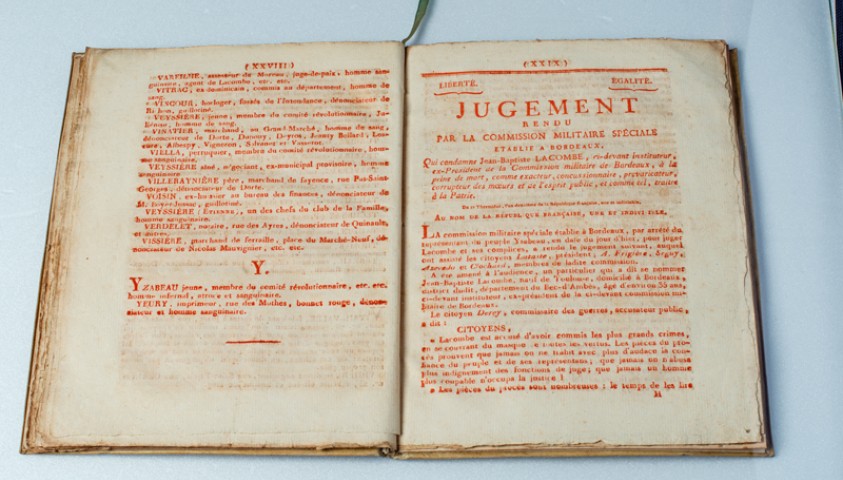 ( XXVIII )
VAREILHE, assesseur de Morvus, juge-de-paix, homme san-
guinaire, agent de Lacombe, etc. etc.
VITRAC, ex-dominicain, commis au département, homme de
sang.
VINCOUR, horloger, fossés de l'Intendance, dénonciateur de
guillotiné.
VEYSSIÈRE, jeune, membre du comité révolutionnaire,
homme de sang.
VINATIER, marchand, au Grand-Marché, homme de sang,
dénonciateur de Dorte, Dumouy, Deyres, Jeunoy Bollard,
Albespy, Vigneron, Salvanes et Vasseror.
VIELLA, perruquier, membre du comité révolutionnaire, hom-
me sanguinaire.
VEYSSIÈRE aîné, négociant, ex-municipal provisoire, homme
sanguinaire
VILLERAYNIÈRE père, marchand de fayence, rue Put-Saint-
Georges, dénonciateur de Dorte.
VOISIN, au bureau des finances, dénonciateur de
guillotiné.
VEYSSIÈRE (Étienne), un des chefs du club de la Famille,
homme sanguinaire.
VERDELET, notaire, rue des Ayres, dénonciateur de Quinaule,
et autres.
VISSIÈRE, marchand de ferraille, place du Marché-Neuf, dé-
nonciateur de Nicolas Mauvignier, etc. etc.
Y.
YZABEAU jeune, membre du comité révolutionnaire, etc. etc.
homme infernal, atroce et sanguinaire.
YEURY, imprimeur, rue des Mothes, bonnet rouge, dénon-
ciateur et homme sanguinaire.
( XXIX )
LIBERTÉ. ÉGALITÉ.
JUGEMENT
RENDU
PAR LA COMMISSION MILITAIRE SPÉCIALE
ETABLIE A BORDEAUX,
Qui condamne Jean-Baptiste LACOMBE, ci-devant instituteur,
ex-Président de la Commission militaire de Bordeaux, à la
peine de mort, comme exacteur, concussionnaire, prévaricateur,
corrupteur des mœurs et de l'esprit public, et comme tel, traitre
à la Patrie.
Thermidor, l'an deuxième de la République Française, une et indivisible.
AU NOM DE LA RÉPUBLIQUE FRANÇAISE, UNE ET INDIVISIBLE.
LA commission militaire spéciale établie à Bordeaux, par arrêté du
représentant du peuple Ysabeau, en date du jour d'hier, pour juger
Lacombe et ses complices, a rendu le jugement suivant, auquel
ont assisté les citoyens Lataste, président, A. Frigière, Segny,
Azevedo et Cuchard, membres de ladite commission.
A été amené à l'audience, un particulier qui a dit se nommer
Jean-Baptiste Lacombe, natif de Toulouse, domicilié à Bordeaux,
district dudit, département du Bec-d'Ambès, âgé d'environ 35 ans,
ci-devant instituteur, ex-président de la ci-devant commission mi-
litaire de Bordeaux.
Le citoyen Derey, commissaire des guerres, accusateur public,
a dit :
CITOYENS,
« Lacombe est accusé d'avoir commis les plus grands crimes,
en se couvrant du masque de toutes les vertus. Les pièces du pro-
cès prouvent que jamais on ne trahit avec plus d'audace la con-
fiance du peuple et de ses représentans; que jamais on n'abusa
plus indignement des fonctions de juge; que jamais un homme
plus coupable n'occupa la justice !
« Les pièces du procès sont nombreuses : le temps de les lire
M